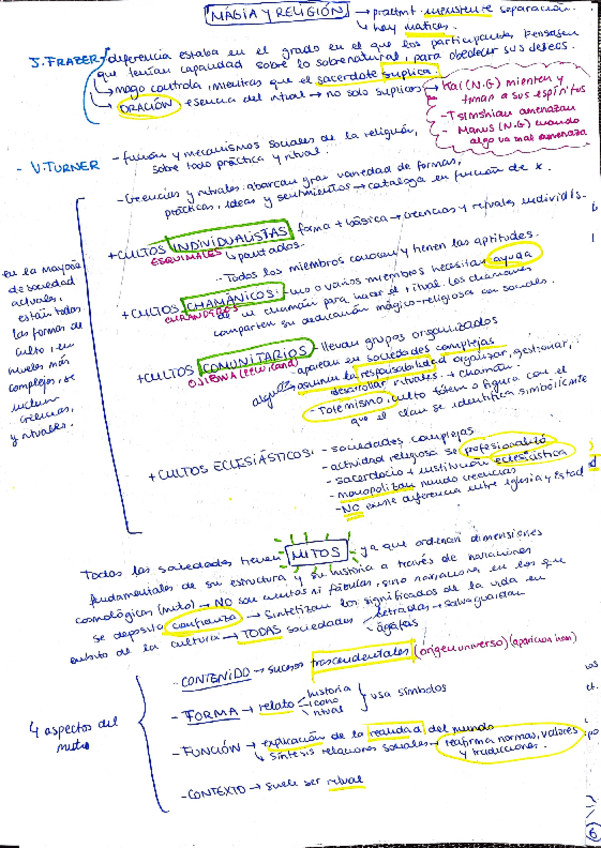 MAGIA Y RELIGIÓN → practmt. inexistente separación.
↳ hay matices.
J. FRAZER → diferencia estaba en el grado en el que los participantes pensasen
que tenían capacidad sobre lo sobrenatural, para obedecer sus deseos.
↳ mago controla, mientras que el sacerdote suplica.
↳ ORACIÓN, esencia del ritual → no solo suplicas
→ Kai (N.G) mienten y
timan a sus espíritus
- Tsimshian amenazan
- Manus (N.G) cuando
algo va mal amenaza
- V. TURNER - función y mecanismos sociales de la religión,
sobre todo práctica y ritual.
- Creencias y rituales abarcan gran variedad de formas,
prácticas, ideas y sentimientos → cataloga en función de x.
+ CULTOS INDIVIDUALISTAS forma + básica → creencias y rituales individls.
ESQUIMALES ↳ pautados.
- Todos los miembros conocen y tienen las aptitudes.
+ CULTOS CHAMÁNICOS: uno o varios miembros necesitan ayuda
CURANDEROS de un chamán para hacer el ritual. Los chamanes
comparten su dedicación mágico-religiosa con sociales.
+ CULTOS COMUNITARIOS - llevan grupos organizados
OJIBWA (EEUU, Canad) - aparecen en sociedades complejas
alguien asume la responsabilidad organizar, gestionar,
desarrollar rituales. + chamán.
- Totemismo, culto tótem o figura con el
que el clan se identifica simbólicmte
+ CULTOS ECLESIÁSTICOS: - sociedades complejas
- actividad religiosa se profesionalizó
- sacerdocio + institución eclesiástica
- monopolizan mundo creencias
- NO existe diferencia entre Iglesia y Estad
en la mayoría
de sociedad
actuales,
están todas
las formas de
culto, en
niveles más
complejos, se
incluyen
creencias,
y rituales.
Todas las sociedades tienen MITOS ya que ordenan dimensiones
fundamentales de su estructura y su historia a través de narraciones
cosmológicas (mito) → NO son cuentos ni fábulas, sino narraciones en los que
se deposita confianza → Sintetizan los significados de la vida en
ámbito de la cultura → TODAS sociedades letradas → salvaguardan
ágrafas
4 aspectos del
mito
- CONTENIDO → sucesos trascendentales (origen universo) (aparición hom)
- FORMA → relato historia
icono
ritual
usa símbolos
- FUNCIÓN → explicación de la realidad del mundo
↳ síntesis relaciones sociales → reafirma normas, valores
y tradiciones.
- CONTEXTO → suele ser ritual
6